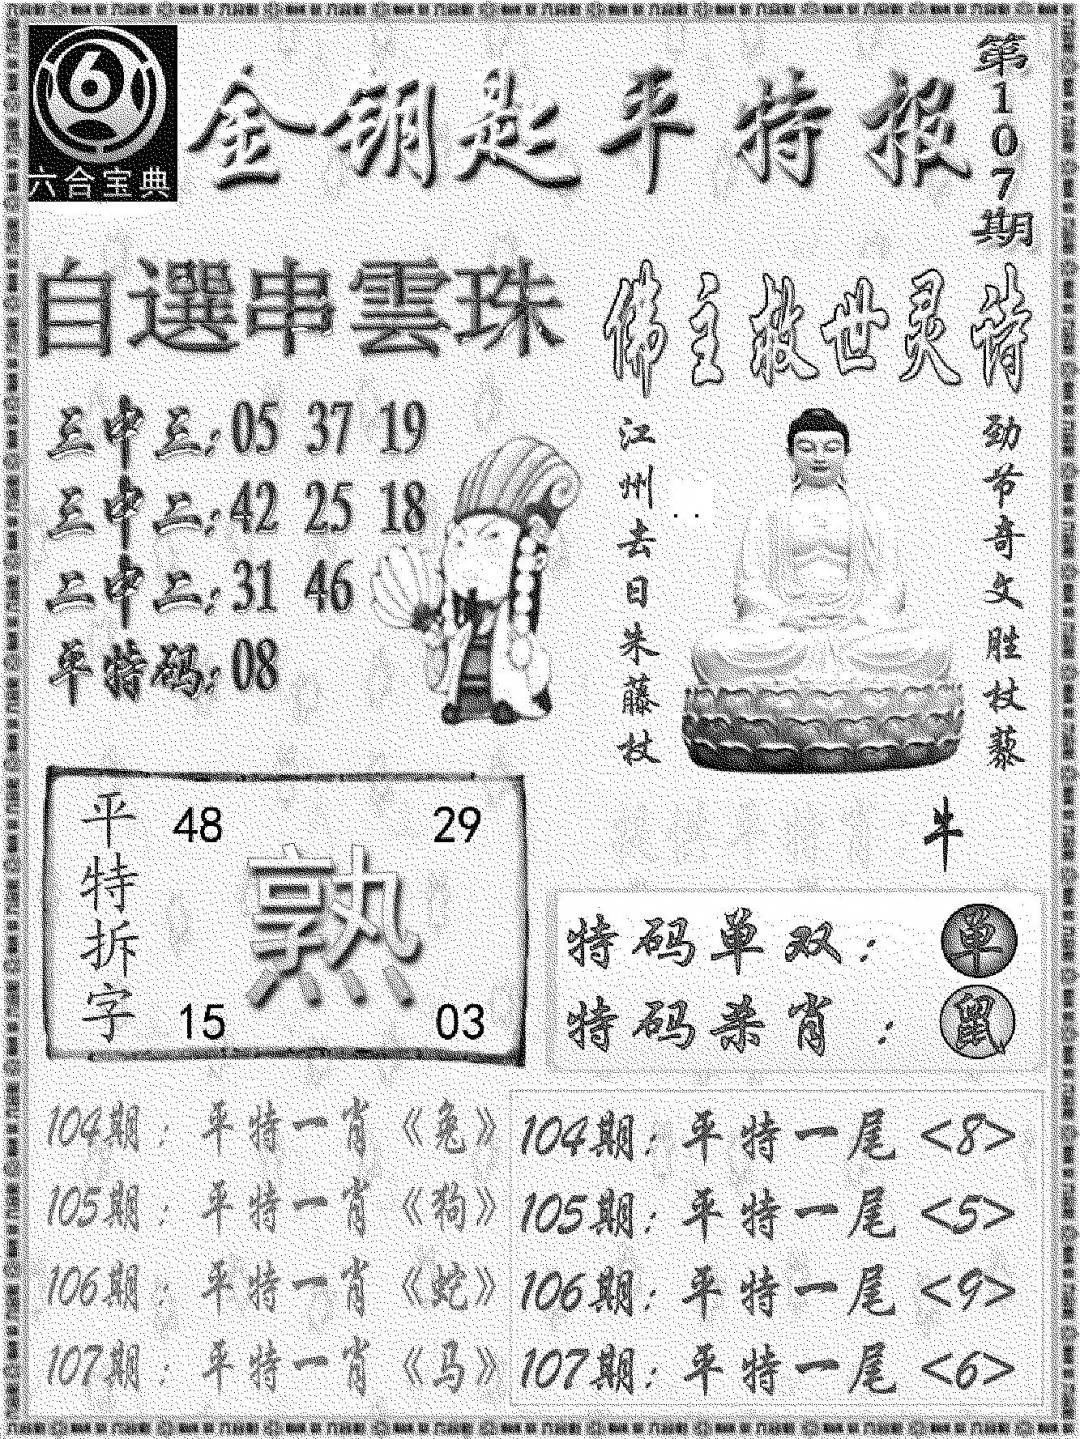 六合宝典
金钥匙平特报
第107期
自選串雲珠
三中三:05 37 19
三中二:42 25 18
二中二:31 46
平特码:08
佛主救世灵诗
劲节奇文胜杖藜
江州去日朱藤杖
牛
平特拆字
48 29
熟
15 03
特码单双: 单
特码杀肖: 鼠
104期: 平特一肖《兔》
105期: 平特一肖《狗》
106期: 平特一肖《蛇》
107期: 平特一肖《马》
104期: 平特一尾 <8>
105期: 平特一尾 <5>
106期: 平特一尾 <9>
107期: 平特一尾 <6>